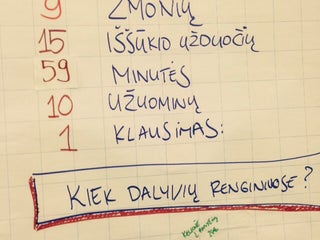 9 ŽMONIŲ
15 IŠŠŪKIO UŽDUOČIŲ
59 MINUTĖS
10 UŽUOMINŲ
1 KLAUSIMAS:
KIEK DALYVIŲ RENGINIUOSE?